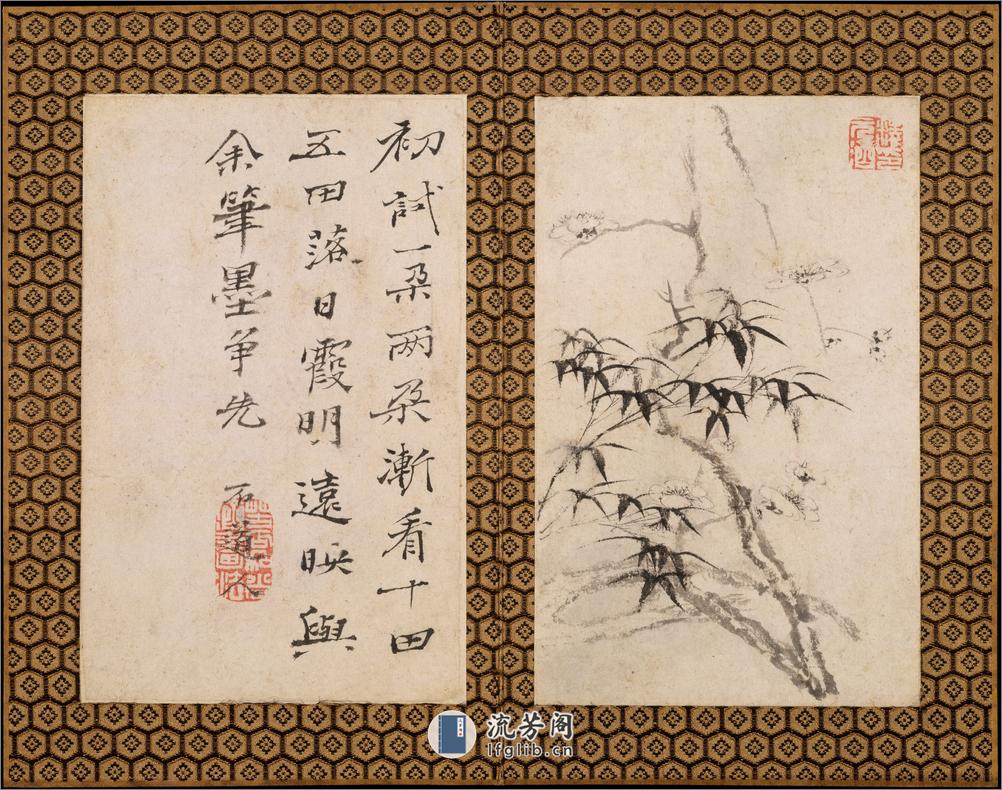 初試一朵两朵漸看十田
五田落日霞明遠映與
余筆墨争先
石道人
流芳阁
lfglib.cn